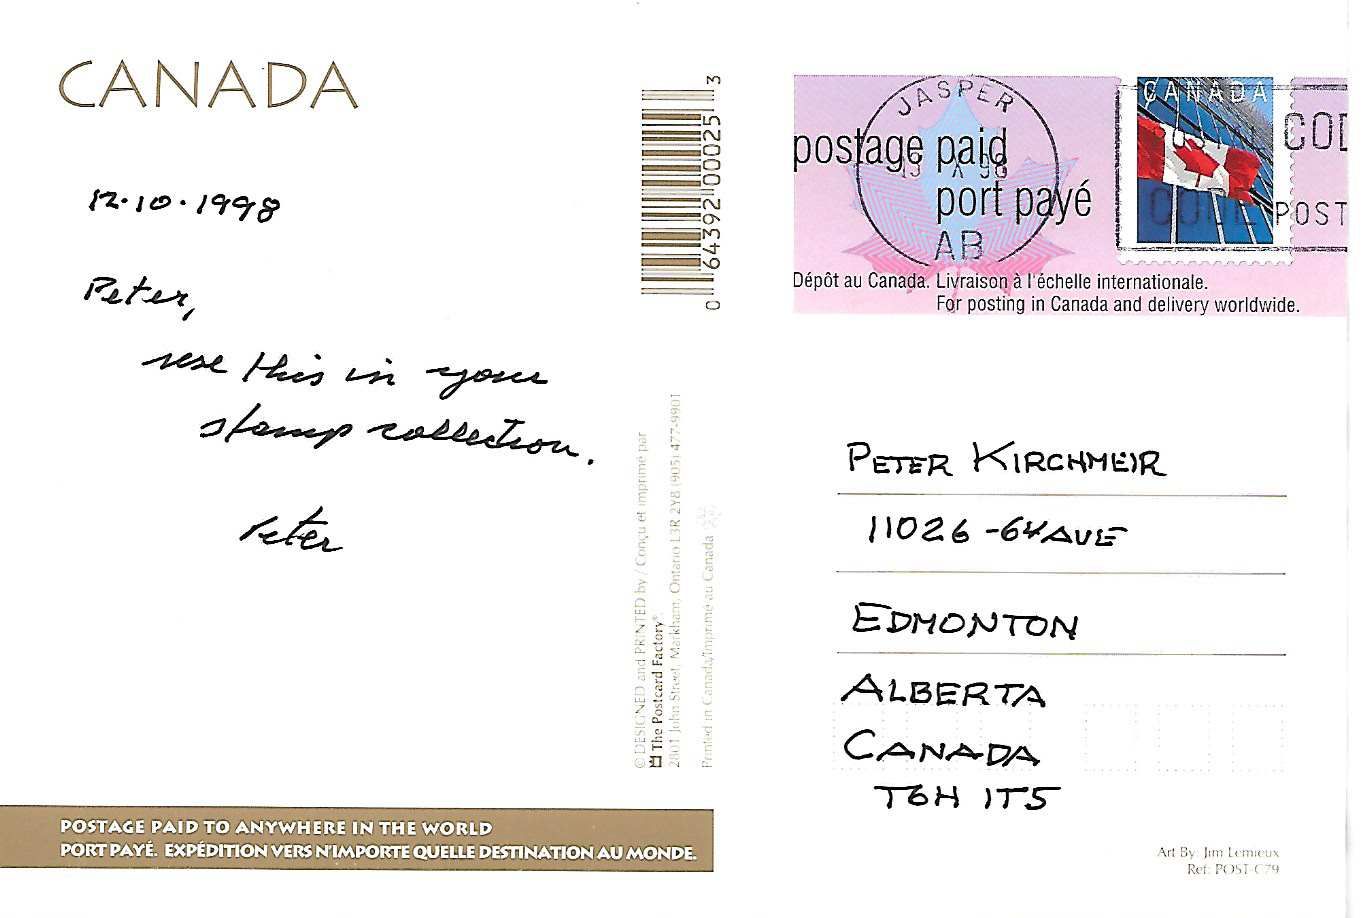 CANADA
12.10.1998
Peter,
use this in your
stamp collection.
Peter
0 64392 00025 3
© DESIGNED and PRINTED by / Conçu et imprimé par
The Postcard Factory
2801 John Street, Markham, Ontario L3R 2Y8 (905) 477-9901
Printed in Canada/Imprimé au Canada
POSTAGE PAID TO ANYWHERE IN THE WORLD
PORT PAYÉ. EXPÉDITION VERS N'IMPORTE QUELLE DESTINATION AU MONDE.
JASPER
AB
postage paid
port payé
CANADA
COD
CODE POST
Dépôt au Canada. Livraison à l'échelle internationale.
For posting in Canada and delivery worldwide.
PETER KIRCHMEIR
11026 - 64 AVE
EDMONTON
ALBERTA
CANADA
T6H 1T5
Art By: Jim Lemieux
Ref: POST-C79